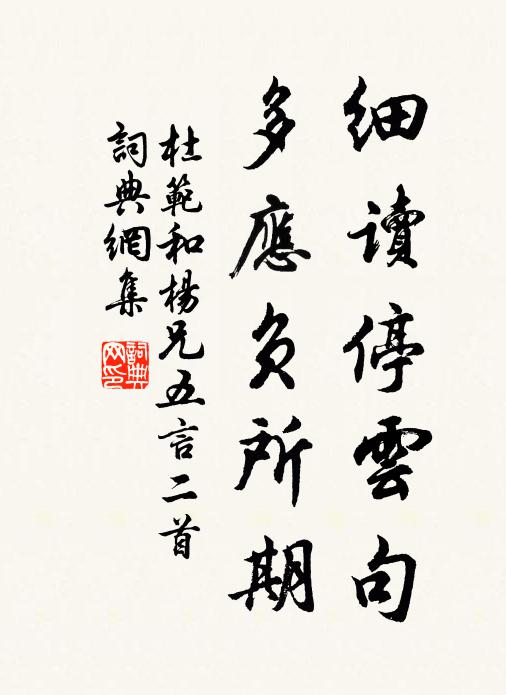 細讀停雲句
多應負所期
杜範和楊兄五言二首
詞典網集
詞典網印